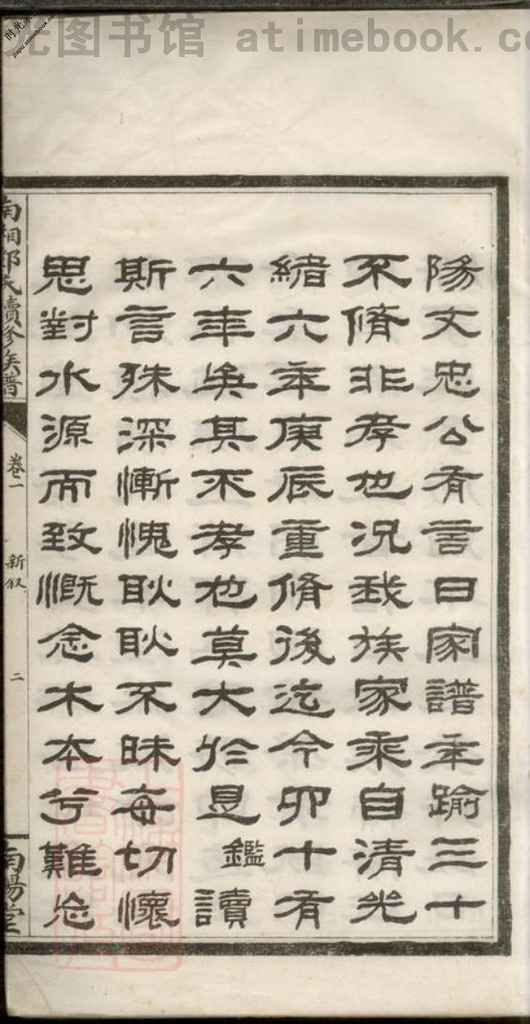 光图书馆 atimebook.co
陽文忠公有言曰家譜年踰三十
不脩非孝也況我族家乘自清光
緒六年庚辰重脩後迄今卯十有
六年矣其不孝也莫大於是鑑讀
斯言殊深慚愧耿耿不昧每切懷
思對水源而致慨念木本兮難忘
南湘鄧氏續修族譜
卷一
新叙
二
南陽堂